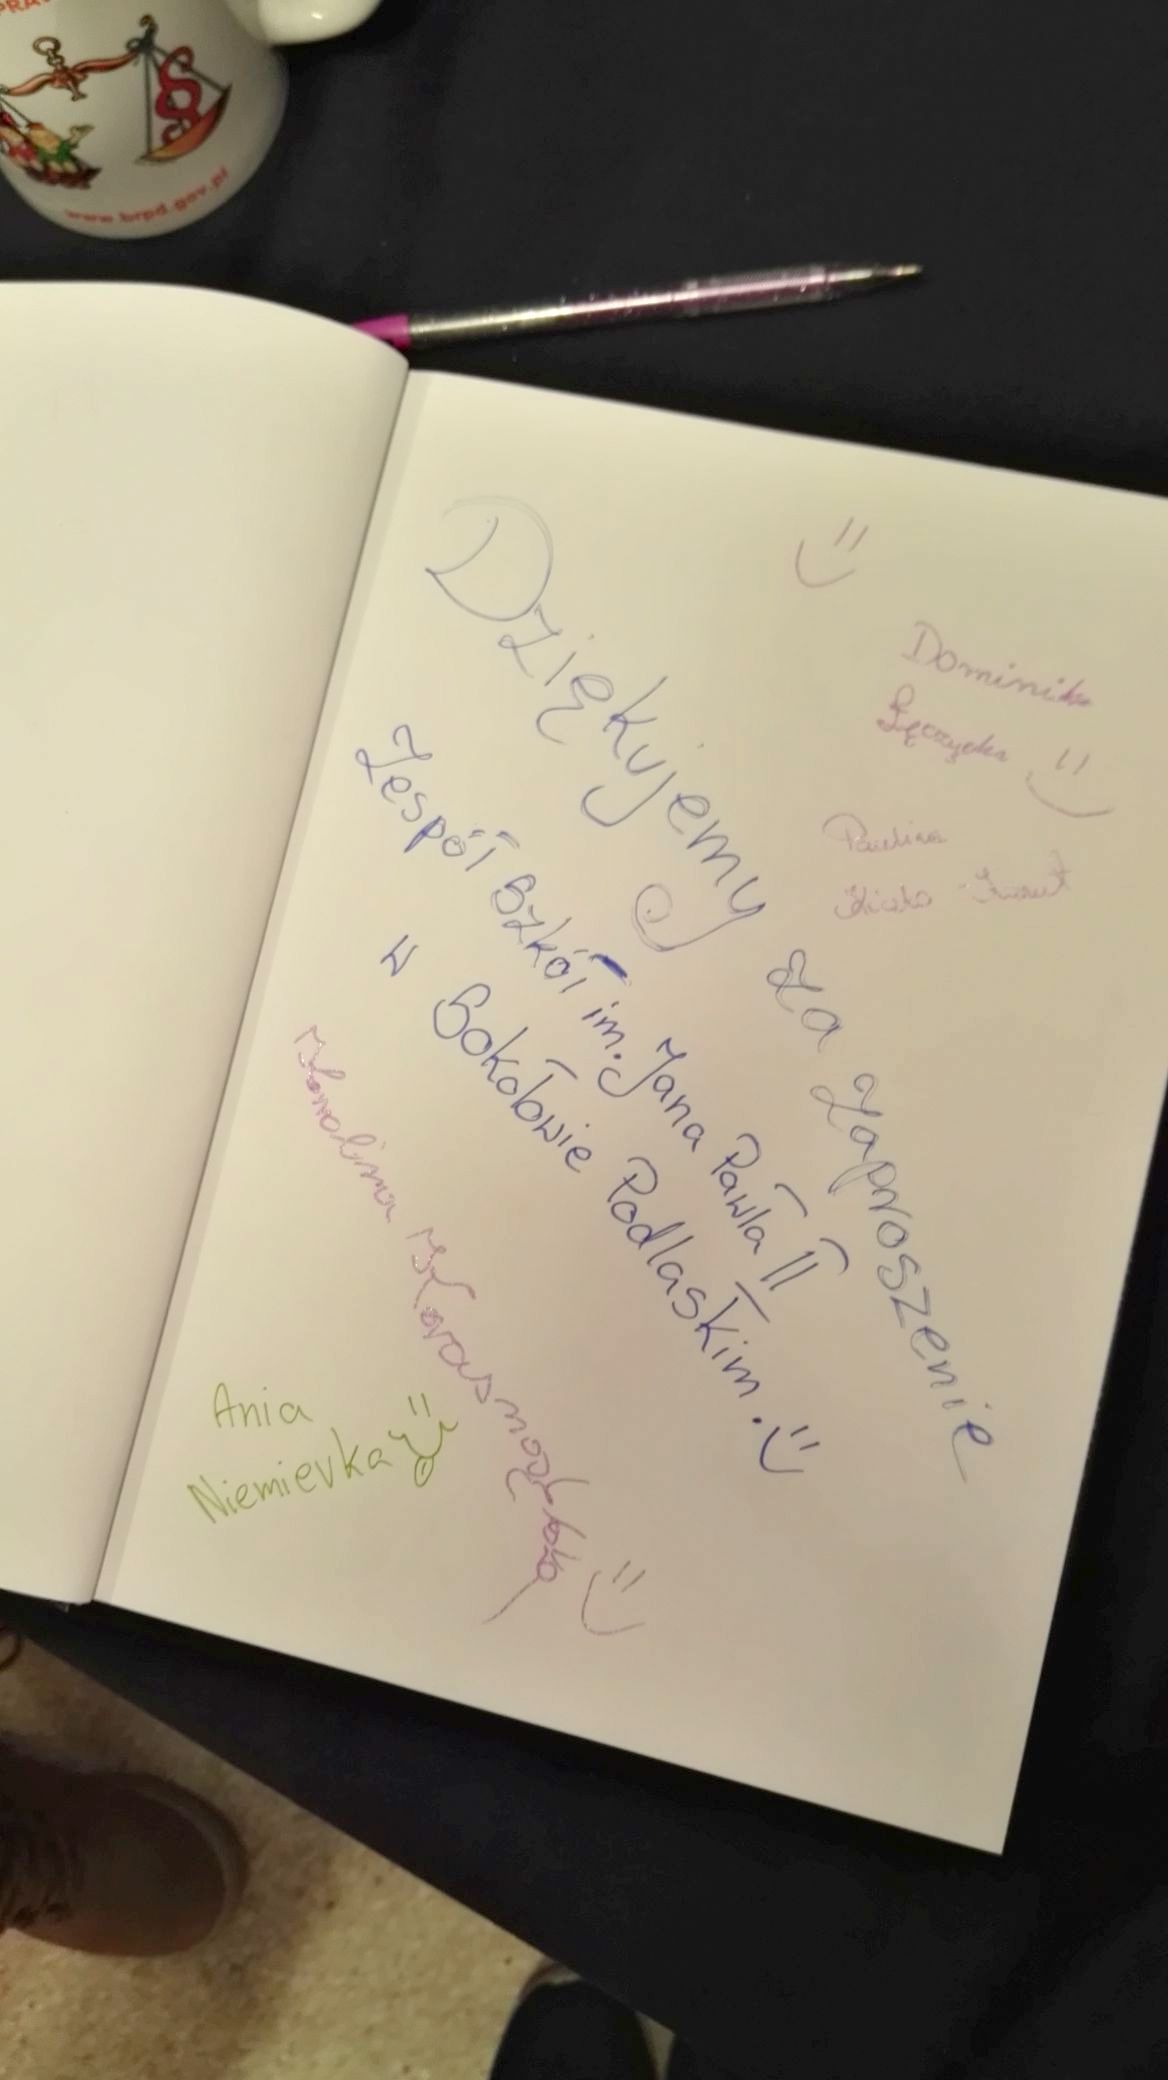 www.brpd.gov.pl
Dziękujemy za zaproszenie
Zespół Szkół im. Jana Pawła II
w Sokołowie Podlaskim.
Dominika
Paulina
Ania
Niemievka